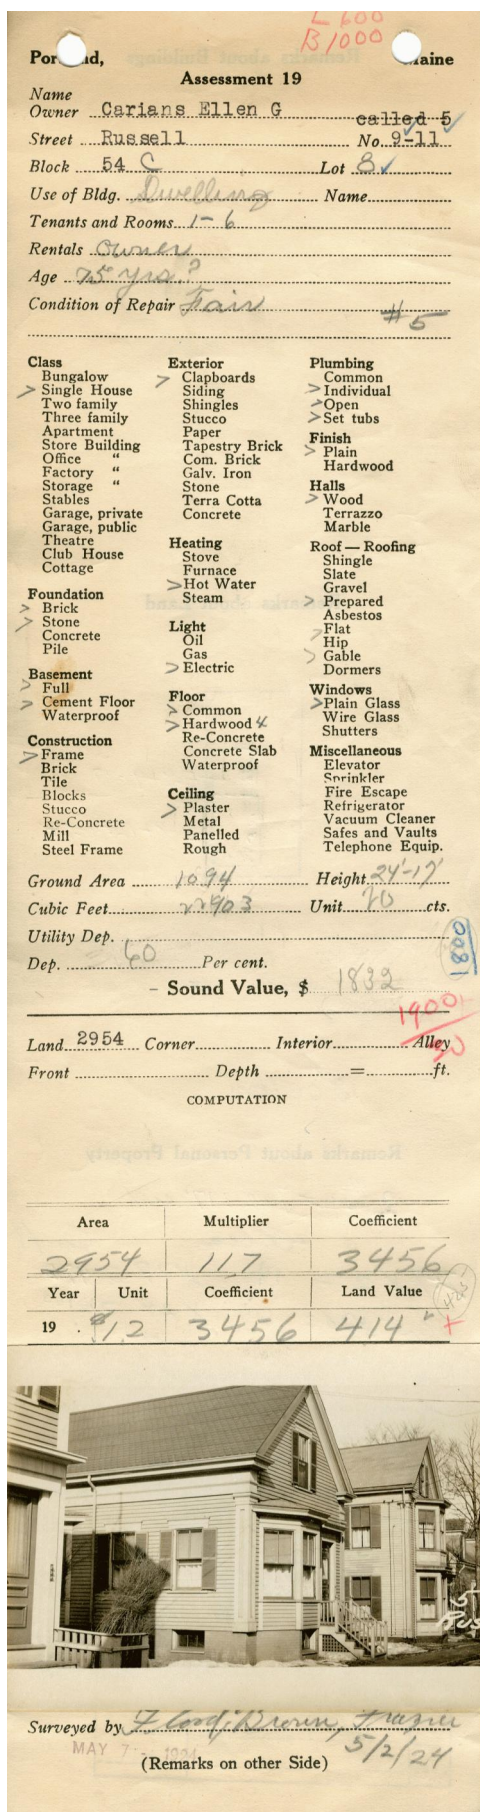 L 600
B 1000
Portland, Maine
Assessment 19
Name
Owner Carians Ellen G called 5
Street Russell No. 9-11
Block 54 C Lot 8
Use of Bldg. Dwelling Name
Tenants and Rooms 1-6
Rentals Owner
Age 75 yrs.?
Condition of Repair Fair #5
Class
> Bungalow
> Single House
Two family
Three family
Apartment
Store Building
Office "
Factory "
Storage "
Stables
Garage, private
Garage, public
Theatre
Club House
Cottage
Foundation
> Brick
> Stone
Concrete
Pile
Basement
> Full
> Cement Floor
Waterproof
Construction
> Frame
Brick
Tile
Blocks
Stucco
Re-Concrete
Mill
Steel Frame
Exterior
> Clapboards
Siding
Shingles
Stucco
Paper
Tapestry Brick
Com. Brick
Galv. Iron
Stone
Terra Cotta
Concrete
Heating
Stove
Furnace
> Hot Water
Steam
Light
Oil
Gas
> Electric
Floor
> Common
> Hardwood 4
Re-Concrete
Concrete Slab
Waterproof
Ceiling
> Plaster
Metal
Panelled
Rough
Plumbing
Common
> Individual
> Open
> Set tubs
Finish
> Plain
Hardwood
Halls
> Wood
Terrazzo
Marble
Roof — Roofing
Shingle
Slate
Gravel
> Prepared
Asbestos
> Flat
Hip
> Gable
Dormers
Windows
> Plain Glass
Wire Glass
Shutters
Miscellaneous
Elevator
Sprinkler
Fire Escape
Refrigerator
Vacuum Cleaner
Safes and Vaults
Telephone Equip.
Ground Area 1094 Height 24'-17'
Cubic Feet 22903 Unit 20 cts.
Utility Dep.
1800
Dep. 60 Per cent.
Sound Value, $ 1832
1900
Land 2954 Corner Interior Alley
Front Depth = ft.
COMPUTATION
Area Multiplier Coefficient
2954 117 3456
Year Unit Coefficient Land Value
19 $.12 3456 414
425
Surveyed by Flood, Brown, Frazier
MAY 7 - 1924 5/2/24
(Remarks on other Side)